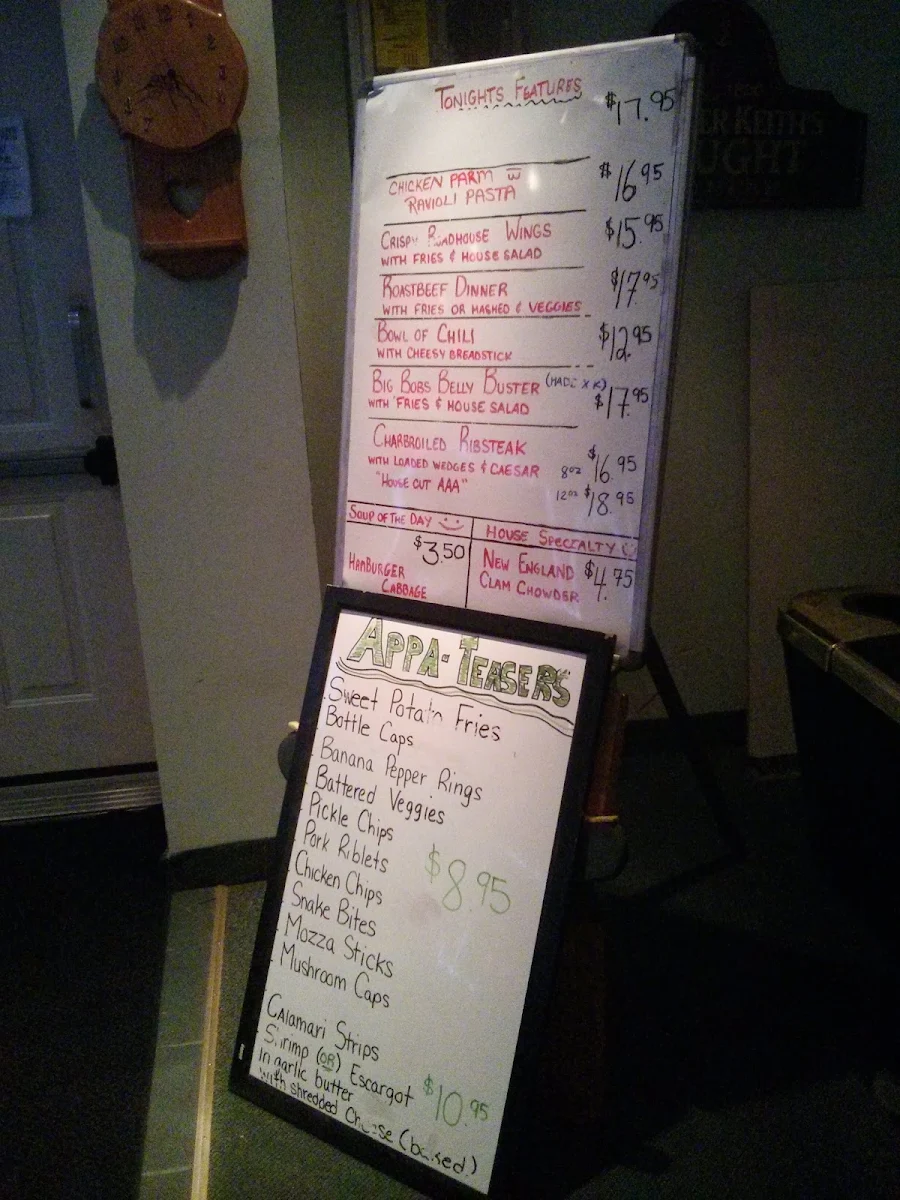 TONIGHTS FEATURES
$17.95
CHICKEN PARM W
RAVIOLI PASTA
$16.95
CRISPY ROADHOUSE WINGS
WITH FRIES & HOUSE SALAD
$15.95
ROASTBEEF DINNER
WITH FRIES OR MASHED & VEGGIES
$17.95
BOWL OF CHILI
WITH CHEESY BREADSTICK
$12.95
BIG BOBS BELLY BUSTER
WITH FRIES & HOUSE SALAD
$17.95
CHARBROILED RIBSTEAK
WITH LOADED WEDGES & CAESAR
"HOUSE CUT AAA"
8oz $16.95
12oz $18.95
SOUP OF THE DAY
$3.50
HAMBURGER
CABBAGE
HOUSE SPECIALTY
NEW ENGLAND
CLAM CHOWDER
$4.75
APPA-TEASERS
Sweet Potato Fries
Bottle Caps
Banana Pepper Rings
Battered Veggies
Pickle Chips
Pork Riblets
Chicken Chips
Snake Bites
Mozza Sticks
Mushroom Caps
$8.95
Calamari Strips
Shrimp (OR) Escargot
in garlic butter
with shredded Cheese (baked)
$10.95
ER KEITH'S
UGHT